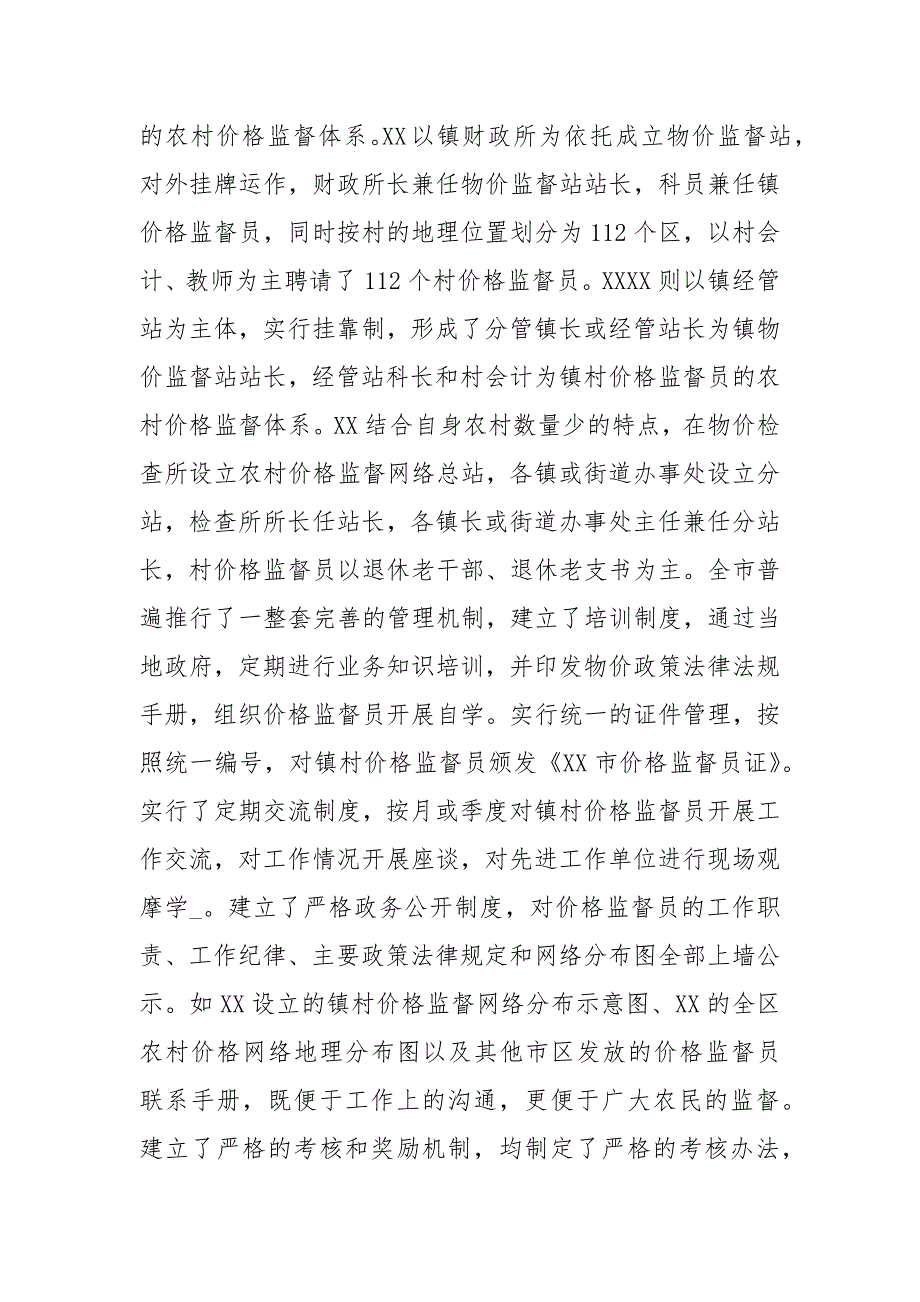 的农村价格监督体系。XX 以镇财政所为依托成立物价监督站，
对外挂牌运作，财政所长兼任物价监督站站长，科员兼任镇
价格监督员，同时按村的地理位置划分为 112 个区，以村会
计、教师为主聘请了 112 个村价格监督员。XXXX 则以镇经管
站为主体，实行挂靠制，形成了分管镇长或经管站长为镇物
价监督站站长，经管站科长和村会计为镇村价格监督员的农
村价格监督体系。XX 结合自身农村数量少的特点，在物价检
查所设立农村价格监督网络总站，各镇或街道办事处设立分
站，检查所所长任站长，各镇长或街道办事处主任兼任分站
长，村价格监督员以退休老干部、退休老支书为主。全市普
遍推行了一整套完善的管理机制，建立了培训制度，通过当
地政府，定期进行业务知识培训，并印发物价政策法律法规
手册，组织价格监督员开展自学。实行统一的证件管理，按
照统一编号，对镇村价格监督员颁发《XX 市价格监督员证》。
实行了定期交流制度，按月或季度对镇村价格监督员开展工
作交流，对工作情况开展座谈，对先进工作单位进行现场观
摩学_。建立了严格政务公开制度，对价格监督员的工作职
责、工作纪律、主要政策法律规定和网络分布图全部上墙公
示。如 XX 设立的镇村价格监督网络分布示意图、XX 的全区
农村价格网络地理分布图以及其他市区发放的价格监督员
联系手册，既便于工作上的沟通，更便于广大农民的监督。
建立了严格的考核和奖励机制，均制定了严格的考核办法，